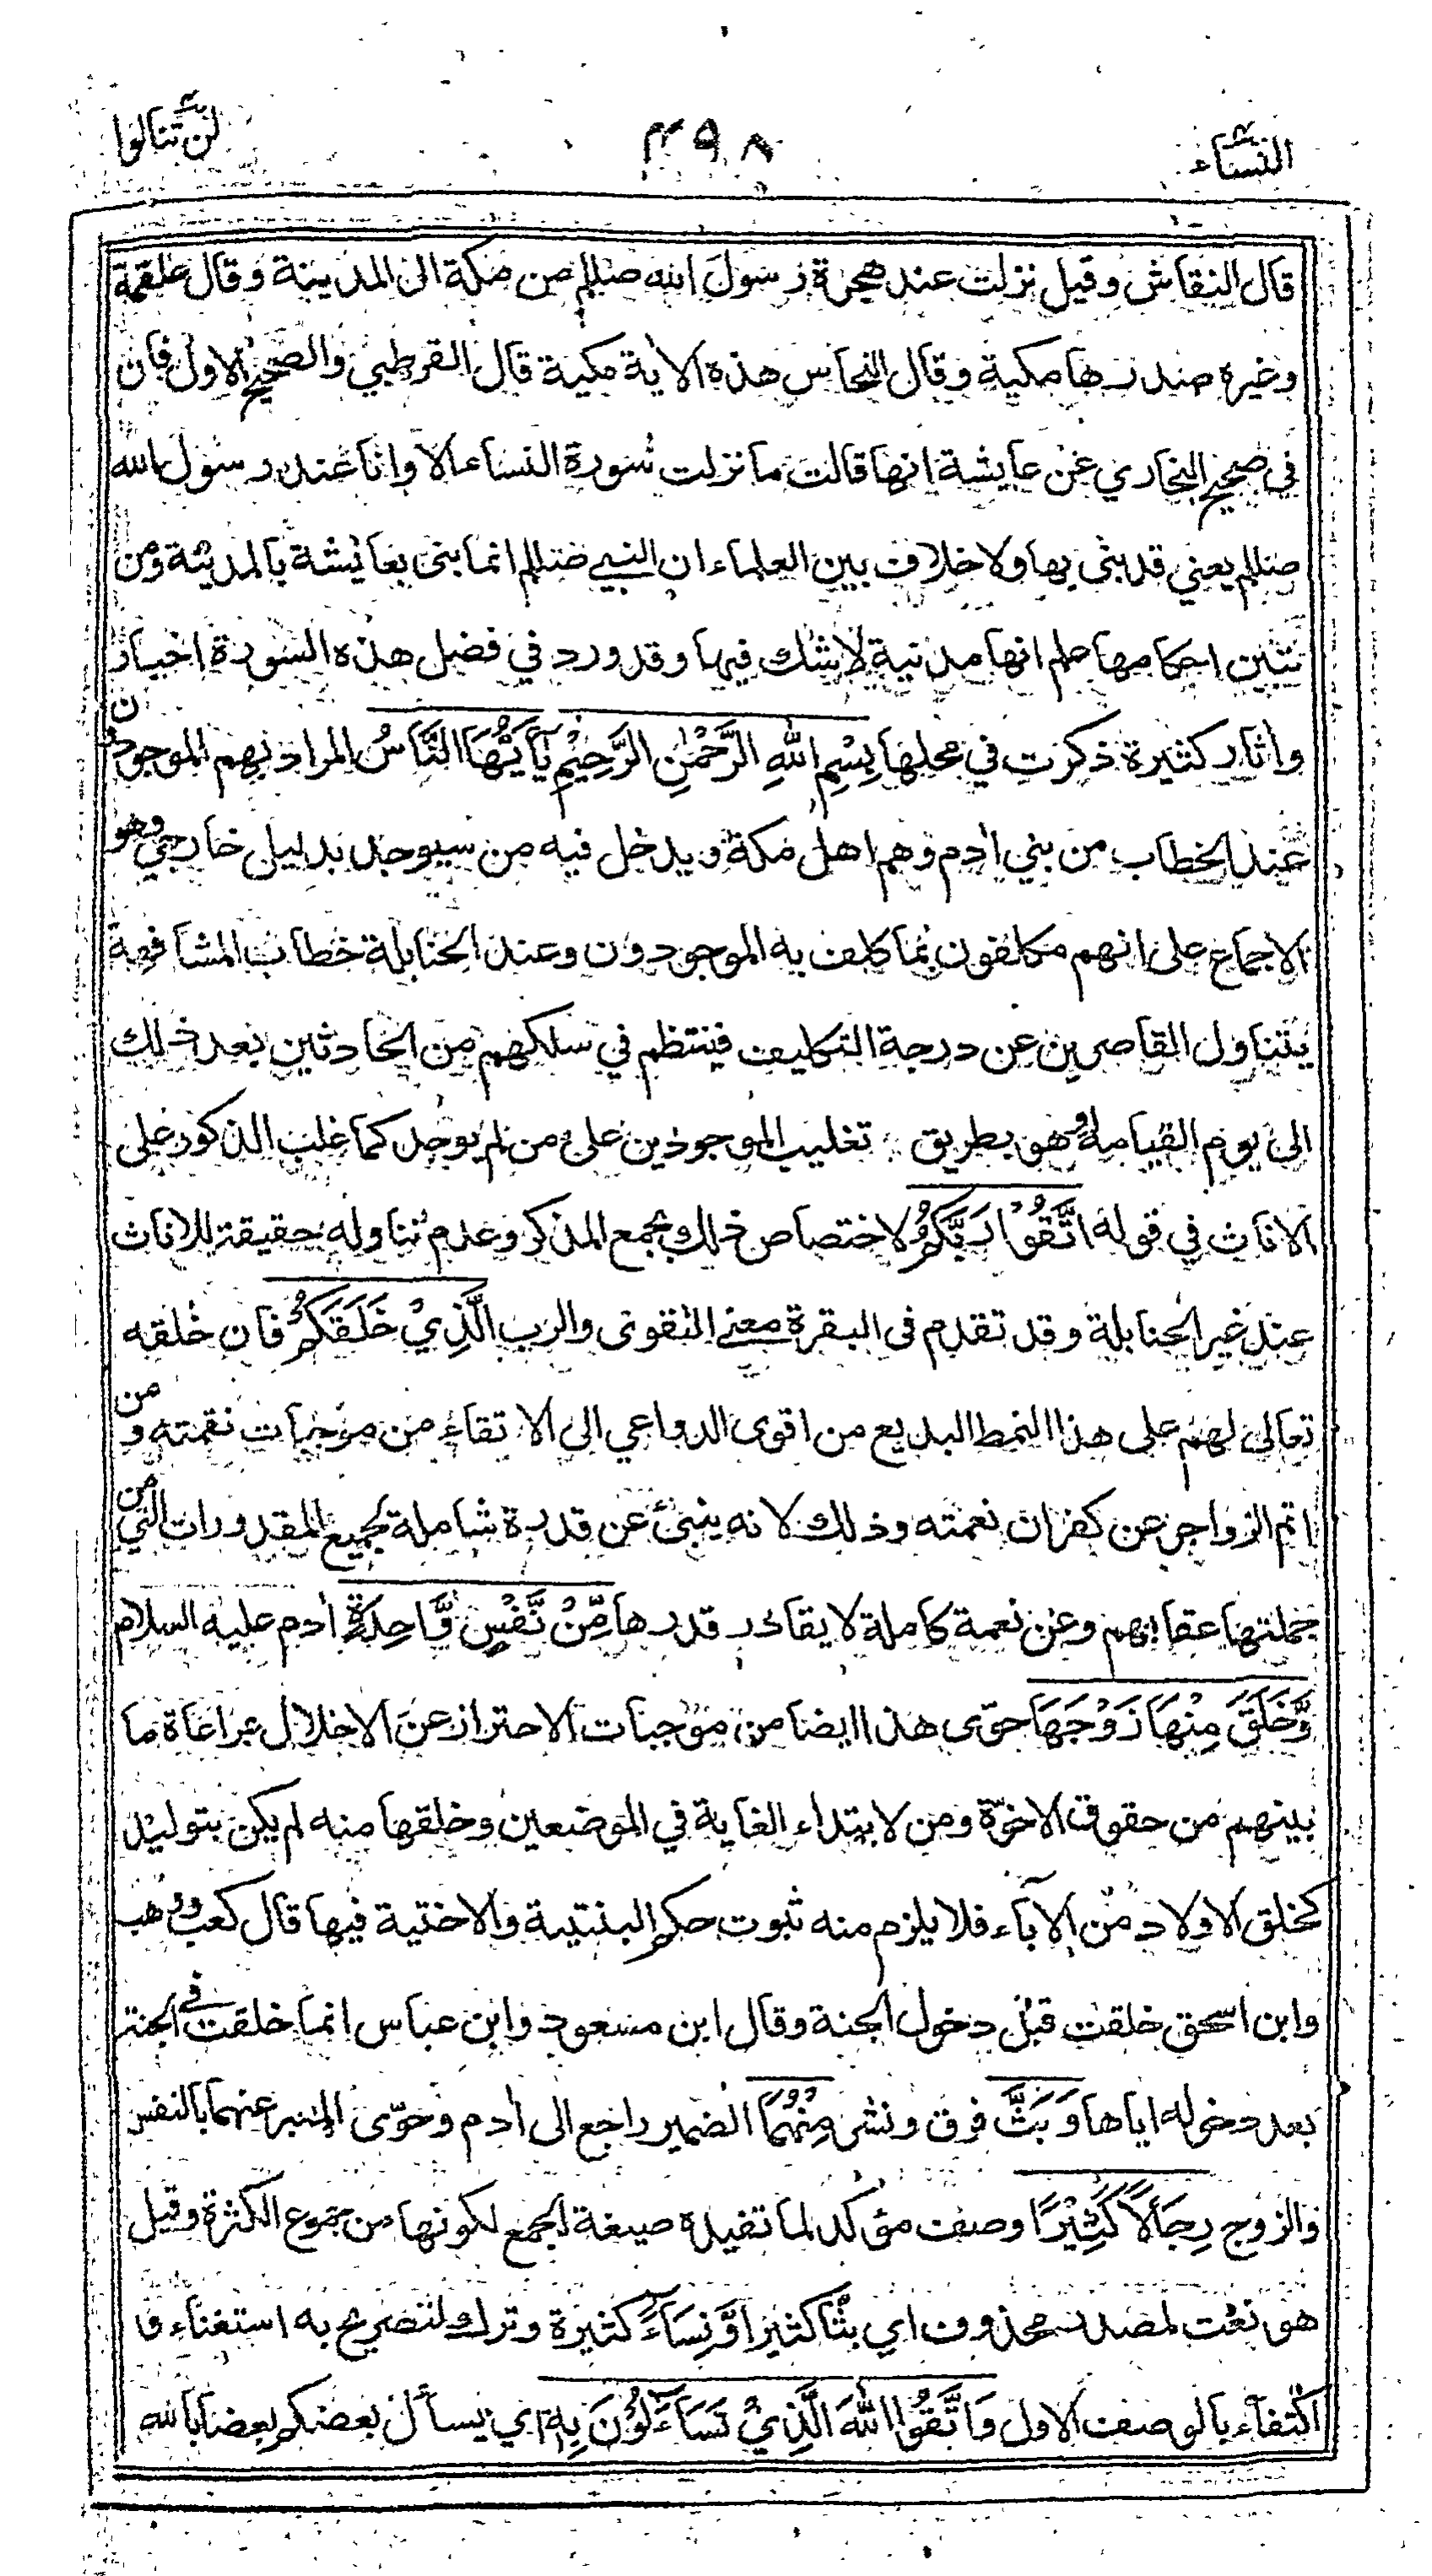 النساء ٤٩٨ لن تنالوا
قال النقاش وقيل نزلت عند هجرة رسول الله صللم من مكة الى المدينة وقال علقمة
وغيره صدرها مكية وقال النحاس هذه الاية مكية قال القرطبي والصحيح الاول فان
في صحيح البخاري عن عايشة انها قالت ما نزلت سورة النساء الا وانا عند رسول الله
صللم يعني قد بنى بها ولا خلاف بين العلماء ان النبي صللم انما بنى بعائشة بالمدينة ومن
تبين احكامها علم انها مدنية لا شك فيها وقد ورد في فضل هذه السورة اخبار
واثار كثيرة ذكرت في محلها بِسْمِ اللهِ الرَّحْمٰنِ الرَّحِيْمِ يٰٓاَيُّهَا النَّاسُ المراد بهم الموجودون
عند الخطاب من بني ادم وهم اهل مكة ويدخل فيه من سيوجد بدليل خارجي وهو
الاجماع على انهم مكلفون بما كلف به الموجودون وعند الحنابلة خطاب المشافهة
يتناول القاصرين عن درجة التكليف فينتظم في سلكهم من الحادثين بعد ذلك
الى يوم القيامة وهو بطريق تغليب الموجودين على من لم يوجد كما غلب الذكور على
الاناث في قوله اتَّقُوْا رَبَّكُمُ لاختصاص ذلك بجمع المذكر وعدم تناوله حقيقة للاناث
عند غير الحنابلة وقد تقدم في البقرة معنى التقوى والرب الَّذِيْ خَلَقَكُمْ فان خلقه
تعالى لهم على هذا النمط البديع من اقوى الدواعي الى الاتقاء من موجبات نقمته ومن
اتم الزواجر عن كفران نعمته وذلك لانه ينبئ عن قدرة شاملة لجميع المقدورات التي من
جملتها عقابهم وعن نعمة كاملة لا يقادر قدرها مِّنْ نَّفْسٍ وَّاحِدَةٍ ادم عليه السلام
وَّخَلَقَ مِنْهَا زَوْجَهَا حوّى هذا ايضا من موجبات الاحتراز عن الاخلال بمراعاة ما
بينهم من حقوق الاخوّة ومن لابتداء الغاية في الموضعين وخلقها منه لم يكن بتوليد
كخلق الاولاد من الآباء فلا يلزم منه ثبوت حكم البنتية والاختية فيها قال كعب ووهب
وابن اسحق خلقت قبل دخول الجنة وقال ابن مسعود وابن عباس انما خلقت في الجنة
بعد دخوله اياها وَبَثَّ فرق ونشر مِنْهُمَا الضمير راجع الى ادم وحوّى المعبر عنهما بالنفس
والزوج رِجَالًا كَثِيْرًا وصف مؤكد لما تفيده صيغة الجمع لكونها من جموع الكثرة وقيل
هو نعت لمصدر محذوف اي بثا كثيرا وَّنِسَآءً كثيرة وترك التصريح به استغناء و
اكتفاء بالوصف الاول وَاتَّقُوا اللهَ الَّذِيْ تَسَآءَلُوْنَ بِهٖ اي يسأل بعضكم بعضا بالله